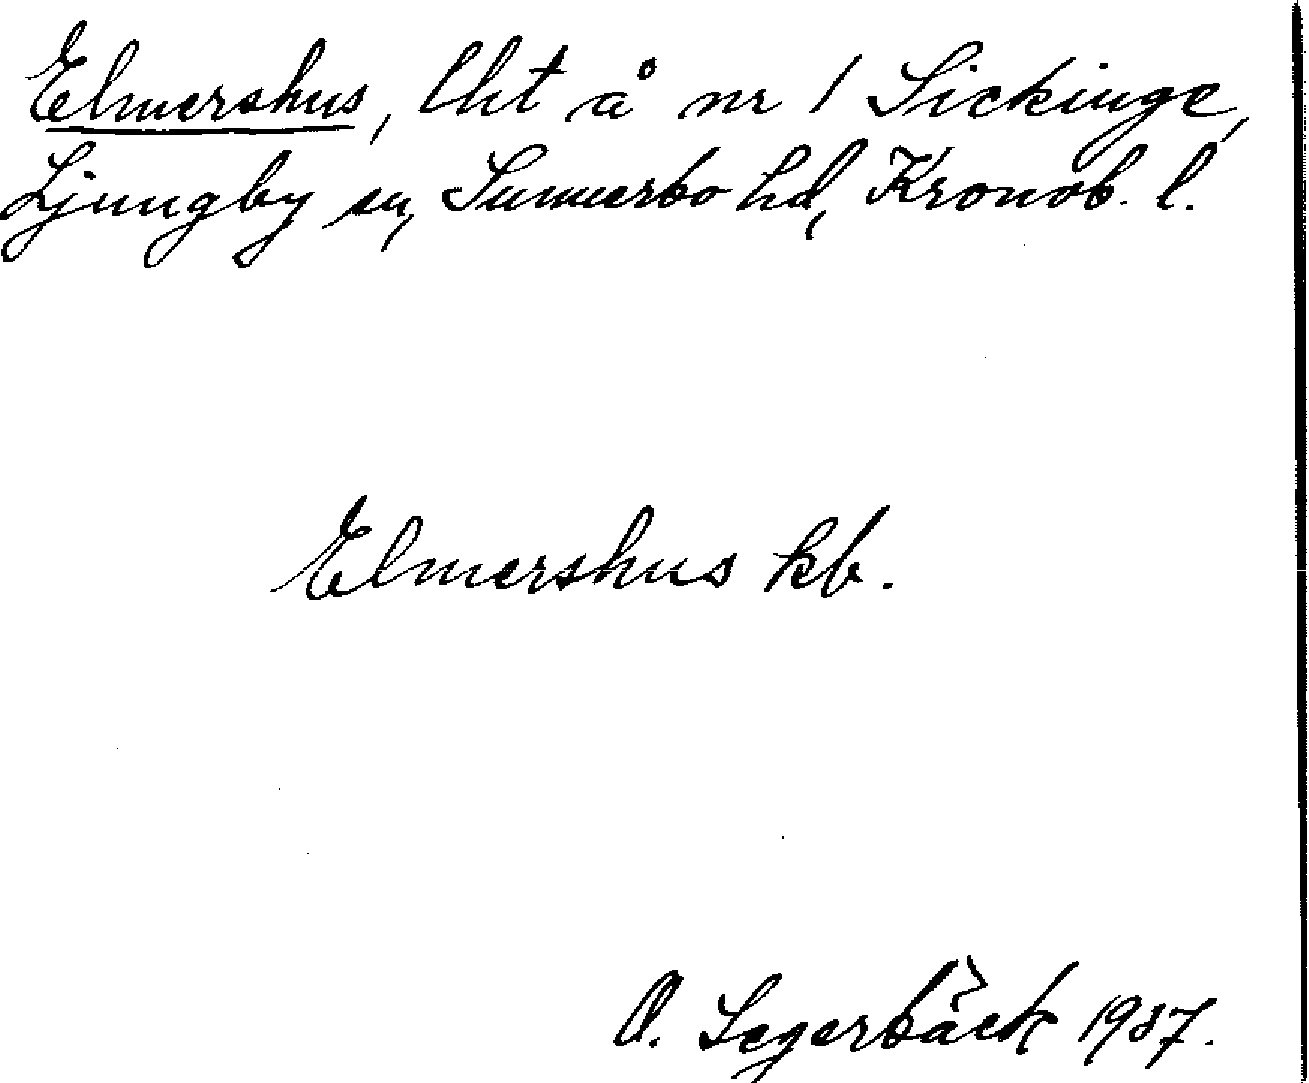 Elmershus, lht å nr 1 Sickinge,
Ljungby sn, Sunnerbo hd, Kronob. l.
Elmershus kb.
O. Segerbäck 1937.